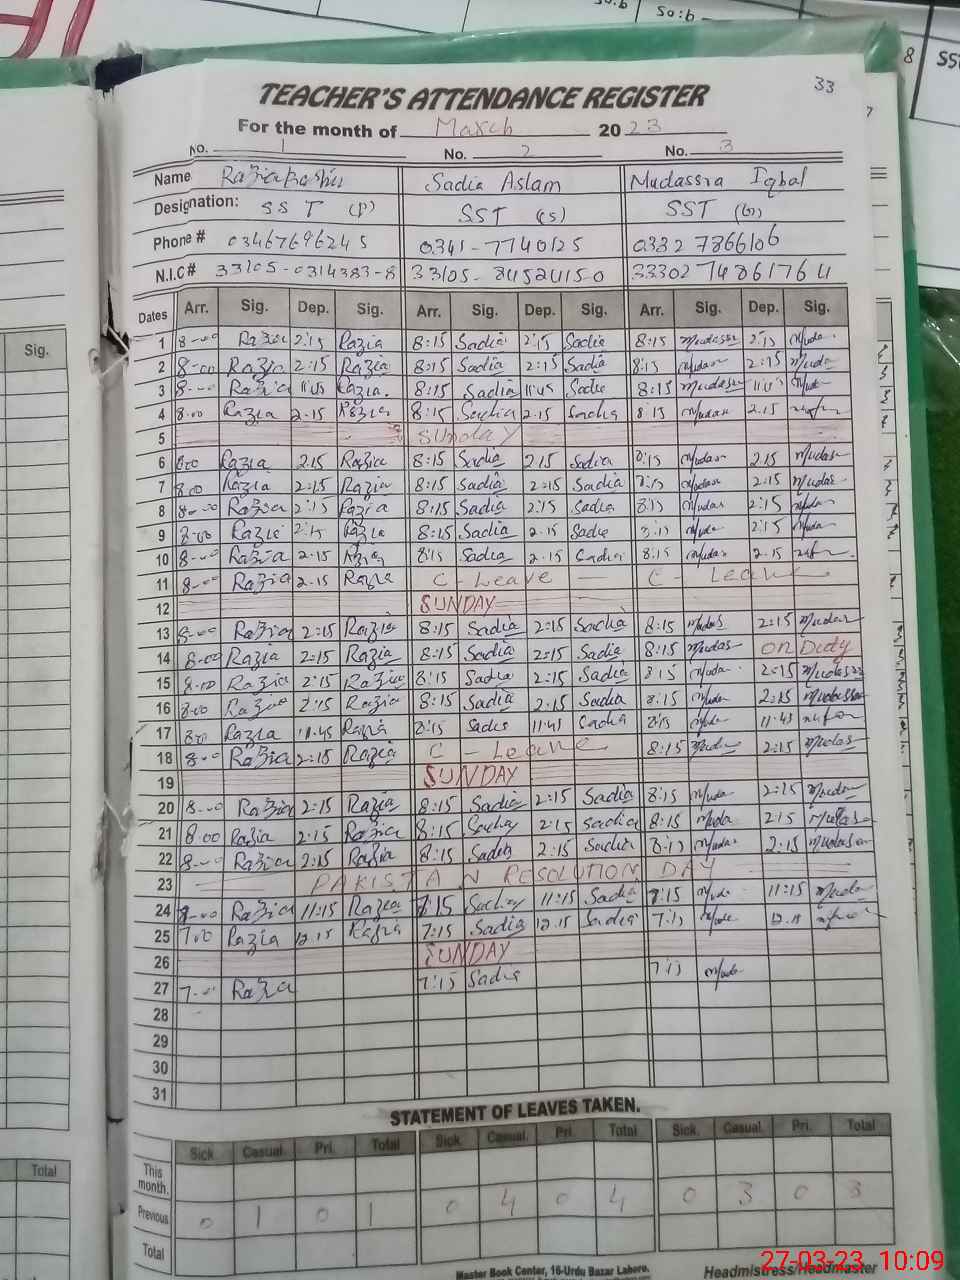 so:b
8
SST
33
TEACHER'S ATTENDANCE REGISTER
For the month of March 2023
No. 1 No. 2 No. 3
Name Razia Bashir Sadia Aslam Mudassra Iqbal
Designation: SST (P) SST (S) SST
Phone # 03467696245 0341-7740125 0332 7866106
N.I.C # 33105-0314383-8 33105-84524150 333027486176 4
Dates Arr. Sig. Dep. Sig. Arr. Sig. Dep. Sig. Arr. Sig. Dep. Sig.
1 8-00 Razia 2:15 Razia 8:15 Sadia 2:15 Sadia 8:15 2:15
2 8-00 Razia 2:15 Razia 8:15 Sadia 2:15 Sadia 8:15 2:15
3 8-00 Razia 11:45 Razia. 8:15 Sadia 11:45 Sadia 8:15 11:45
4 8.00 Razia 2.15 Razia 8:15 Sadia 2.15 Sadia 8:15 2.15
5 SUNDAY
6 8:00 Razia 2.15 Razia 8:15 Sadia 2.15 Sadia 8:15 2.15
7 8.00 Razia 2:15 Razia 8:15 Sadia 2:15 Sadia 8:15 2:15
8 8-00 Razia 2:15 Razia 8:15 Sadia 2:15 Sadia 8:15 2:15
9 8-00 Razia 2:15 Razia 8:15 Sadia 2.15 Sadia 8:15 2:15
10 8-00 Razia 2.15 Razia 8:15 Sadia 2.15 Sadia 8:15 2.15
11 8-00 Razia 2.15 Razia C-Leave C-Leave
12 SUNDAY
13 8-00 Razia 2:15 Razia 8:15 Sadia 2:15 Sadia 8:15 2:15
14 8-00 Razia 2:15 Razia 8:15 Sadia 2:15 Sadia 8:15 on Duty
15 8-00 Razia 2:15 Razia 8:15 Sadia 2.15 Sadia 8:15 2:15
16 8.00 Razia 2:15 Razia 8:15 Sadia 2.15 Sadia 8:15 2:15
17 8.00 Razia 11.45 Razia 8:15 Sadia 11:45 Sadia 8:15 11.45
18 8-00 Razia 2:15 Razia C-Leave 8:15 2:15
19 SUNDAY
20 8-00 Razia 2:15 Razia 8:15 Sadia 2:15 Sadia 8:15 2:15
21 8.00 Razia 2:15 Razia 8:15 2:15 Sadia 8:15 2:15
22 8-00 Razia 2:15 Razia 8:15 Sadia 2:15 Sadia 8:15 2:15
23 PAKISTAN RESOLUTION DAY
24 Razia 11:15 Razia 7:15 11:15 Sadia 7:15 11:15
25 7.00 Razia 12.15 Razia 7:15 Sadia 12.15 Sadia 7:15 12.15
26 SUNDAY
27 7-00 Razia 7:15 Sadia 7:15
28
29
30
31
STATEMENT OF LEAVES TAKEN.
Sick Casual Pri. Total Sick Casual. Pri. Total Sick. Casual Pri. Total
This month.
Previous 0 1 0 1 0 4 0 4 0 3 0 3
Total
Master Book Center, 16-Urdu Bazar Lahore.
Headmistress/Headmaster
Sig.
Total
27-03-23 10:09